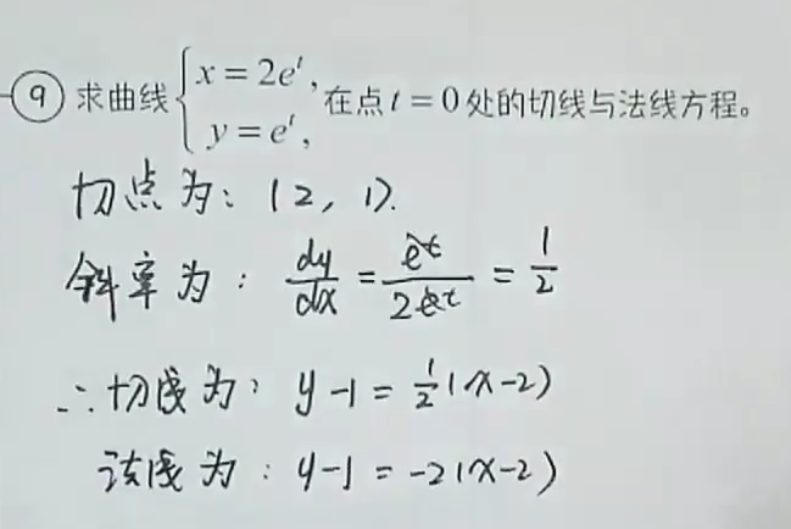 ⑨ 求曲线 { x = 2e^t, y = e^t, 在点 t = 0 处的切线与法线方程。
切点为: (2, 1).
斜率为: dy/dx = e^t/2e^t = 1/2
∴切线为: y-1 = 1/2(x-2)
法线为: y-1 = -2(x-2)